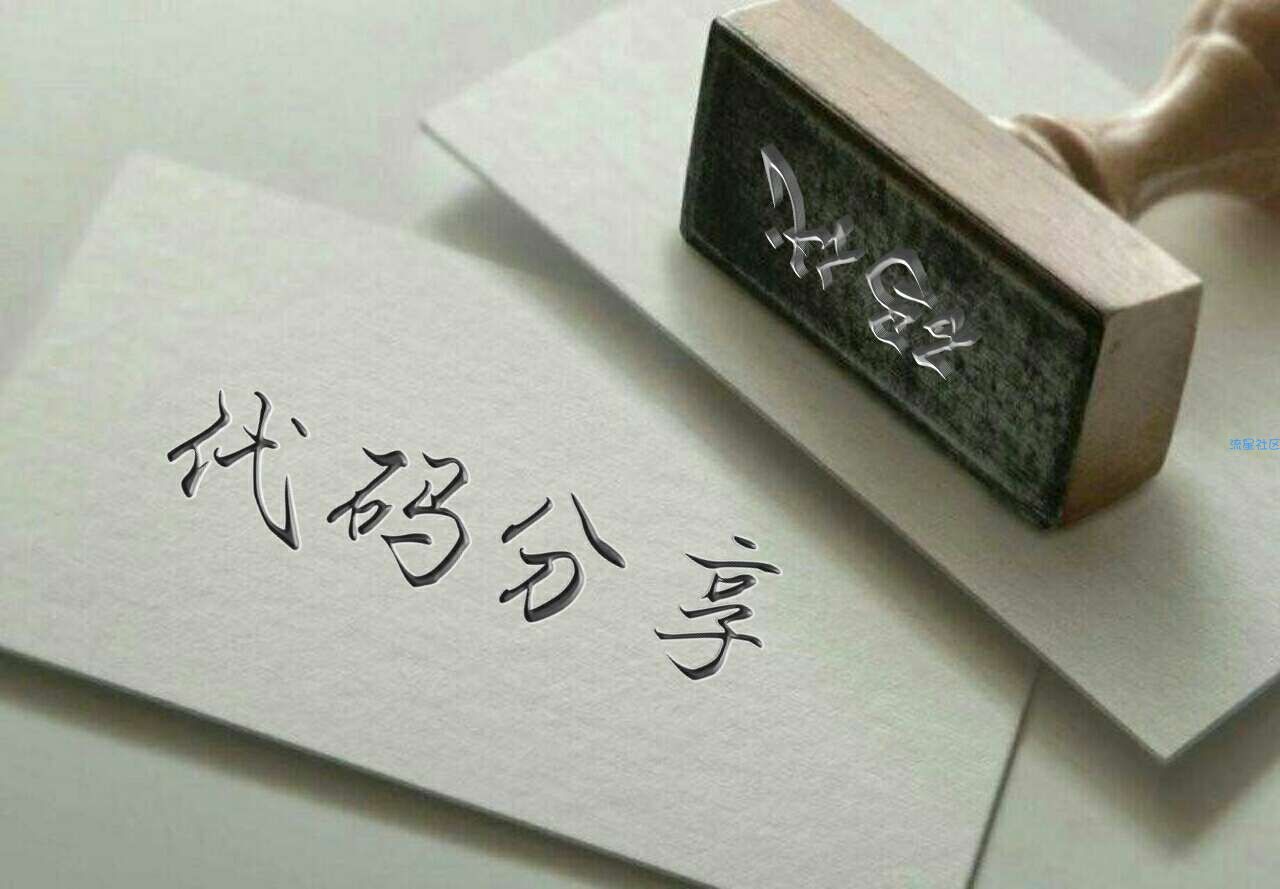 代码分享
流星社区